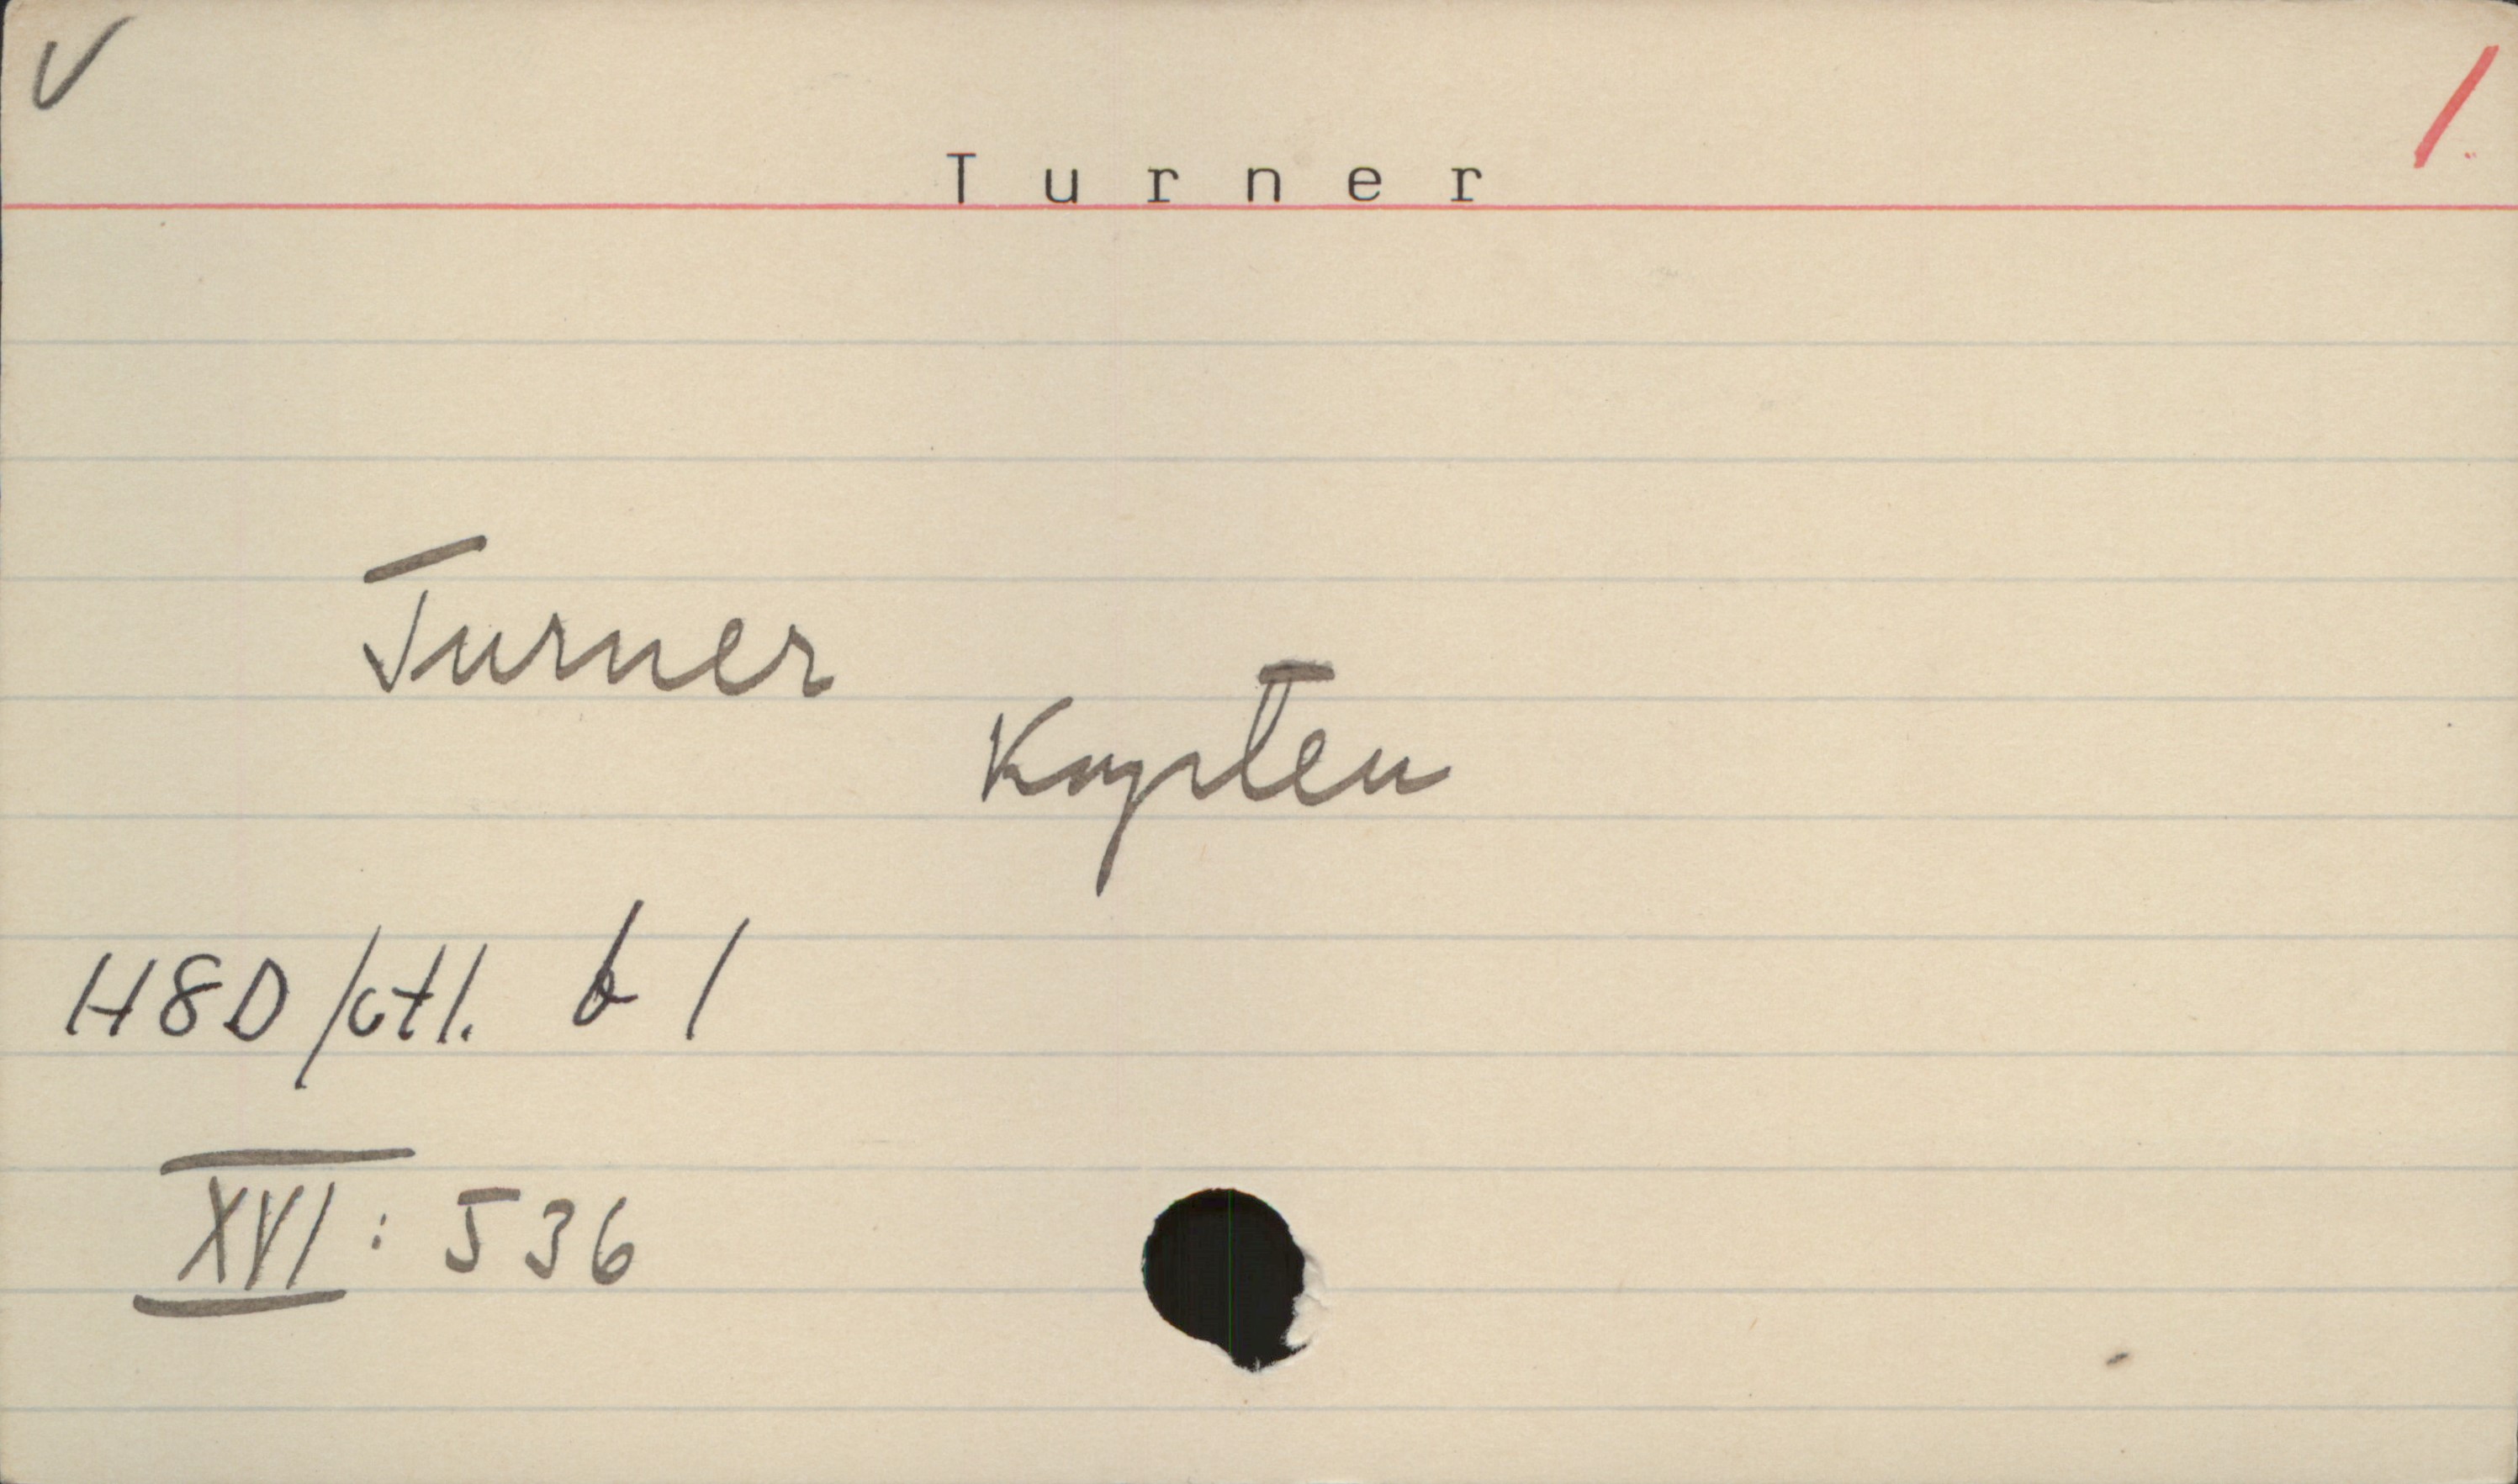 T u r n e r
Turner
Kapten
H8D/utl. b 1
XVI: 536